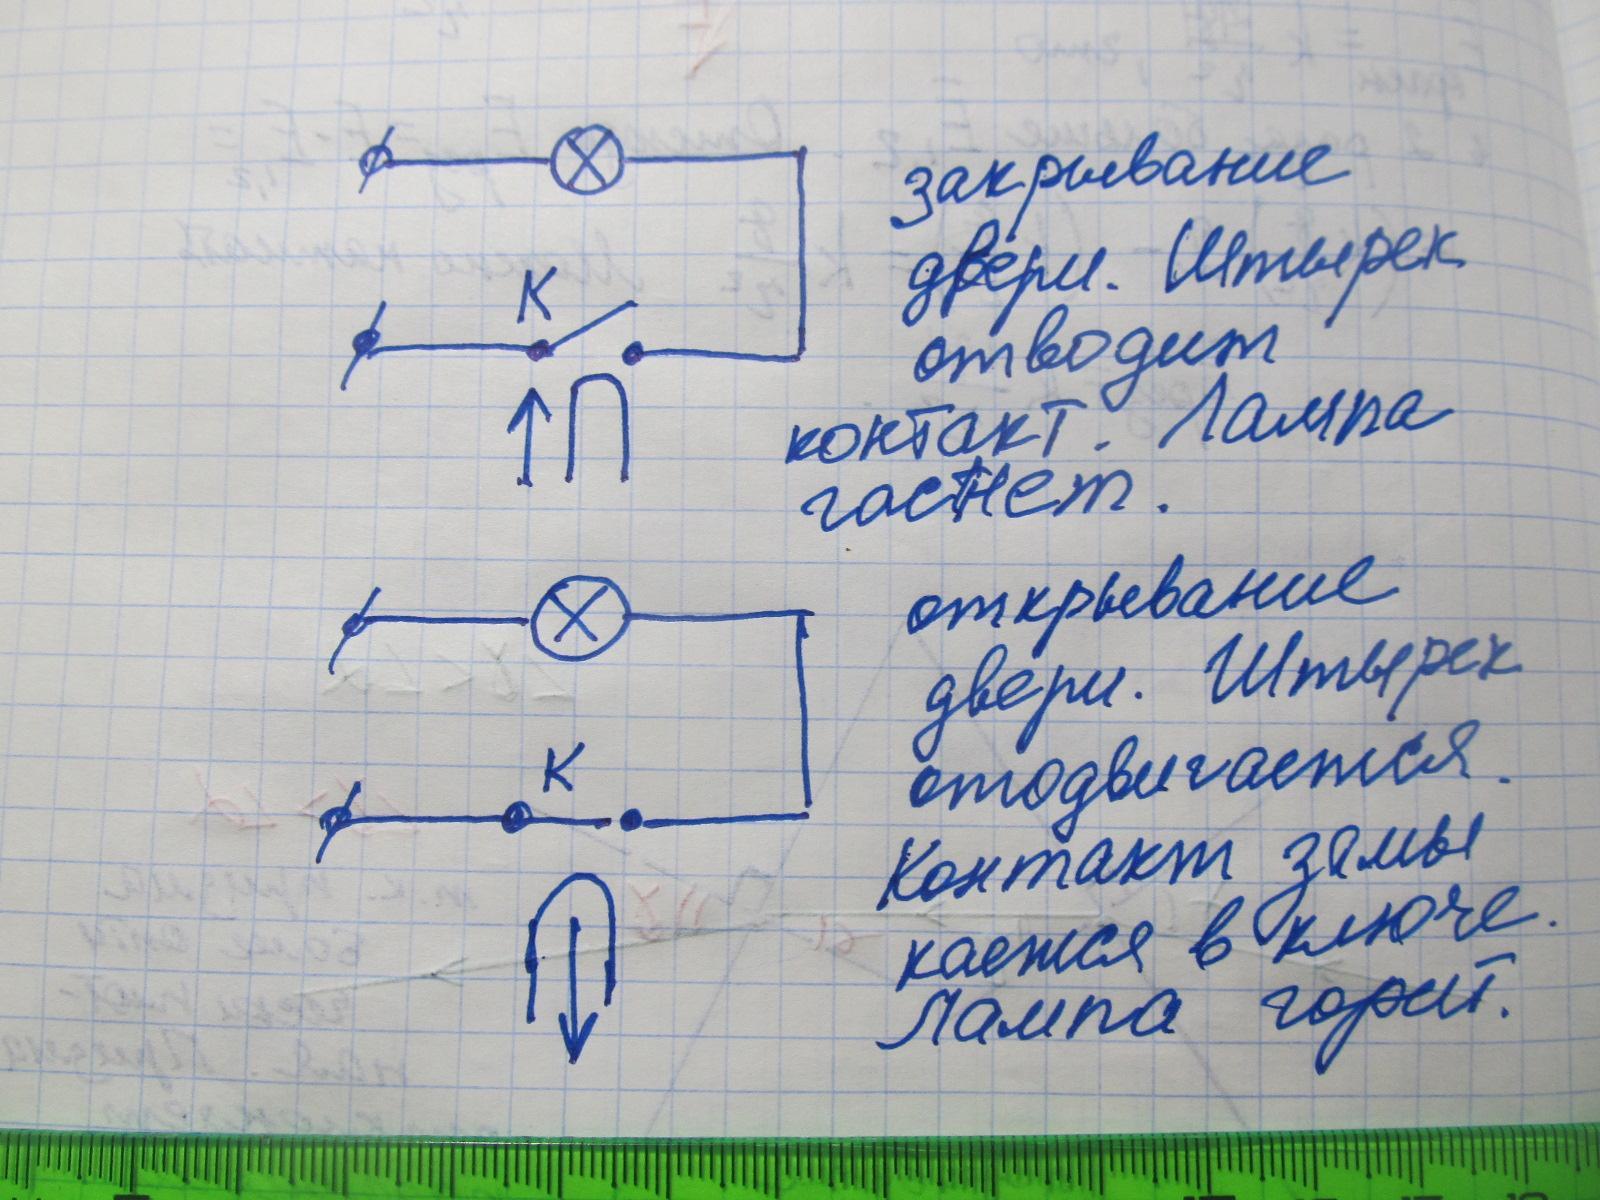 закрывание
двери. Штырек
отводит
К
контакт. Лампа
гаснет.
открывание
двери. Штырек
отодвигается.
К
Контакт замы
кается в ключе.
Лампа горит.